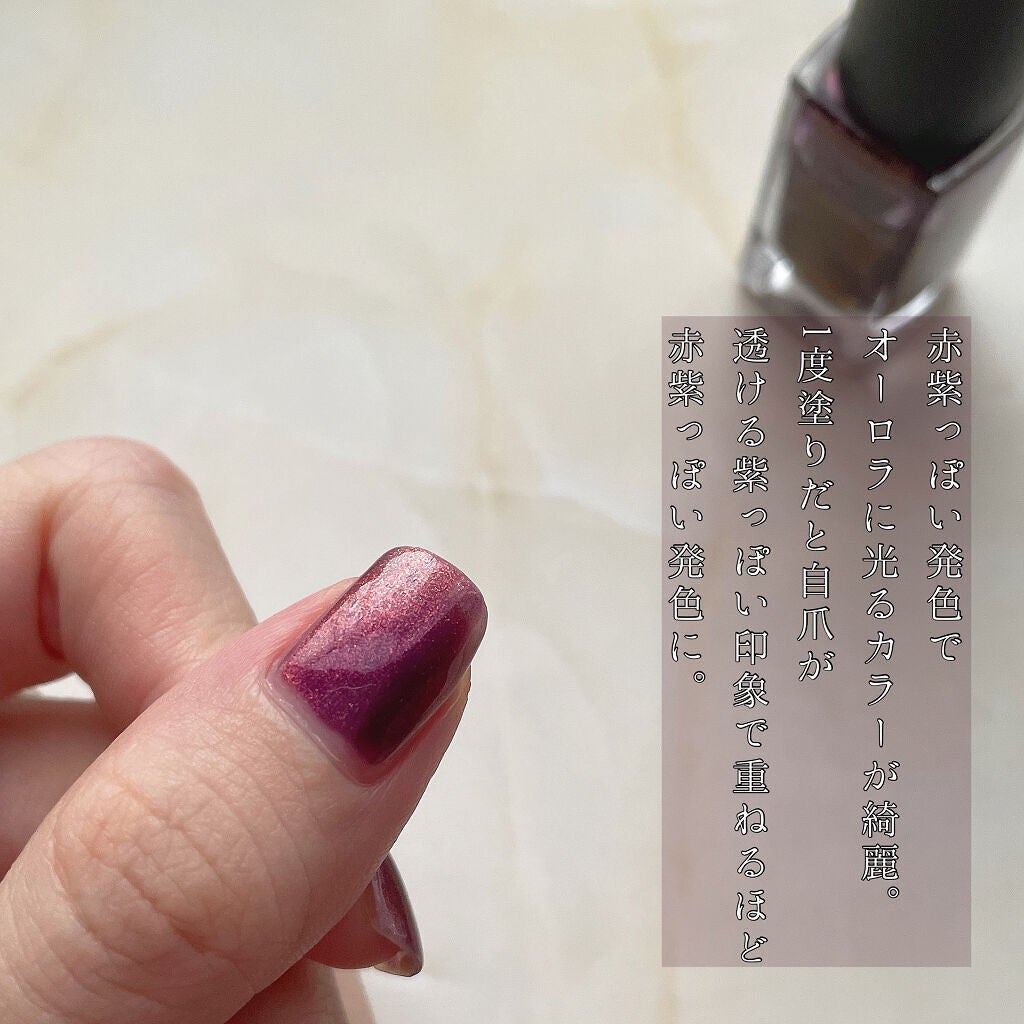 赤紫っぽい発色で
オーロラに光るカラーが綺麗。
1度塗りだと自爪が
透ける紫っぽい印象で重ねるほど
赤紫っぽい発色に。